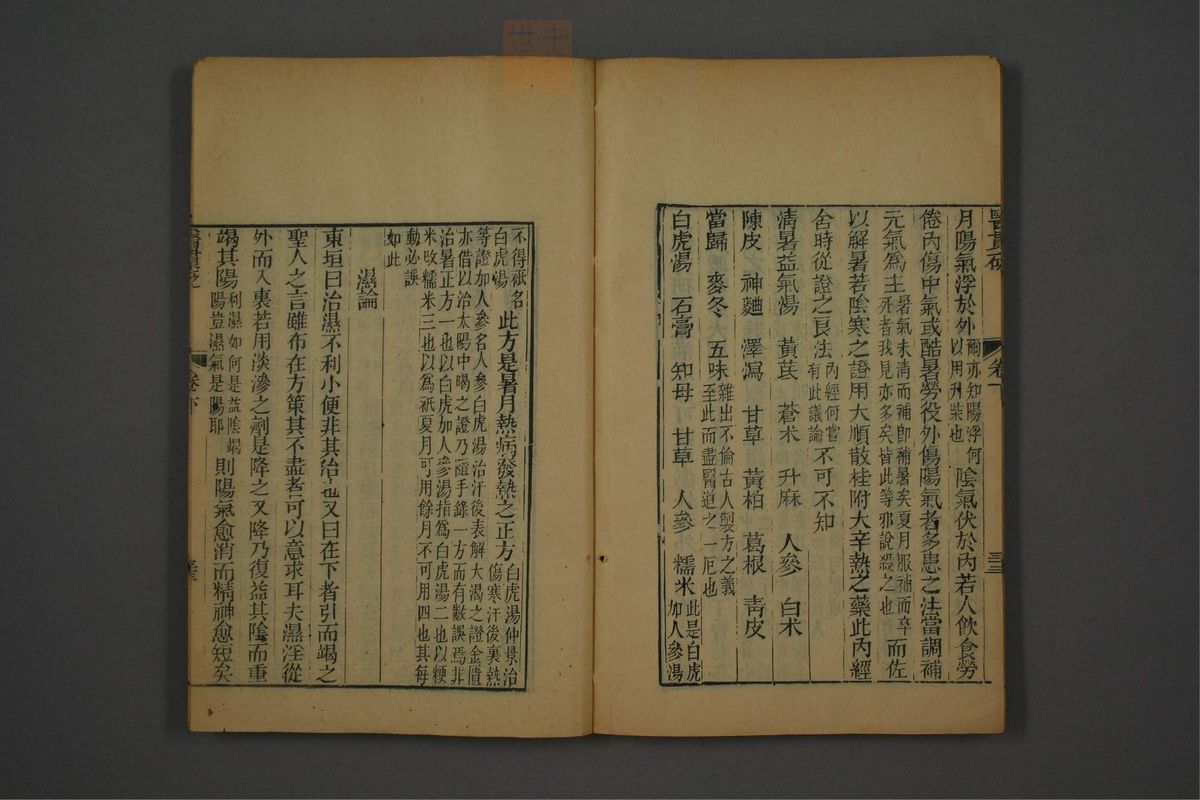 醫貫砭
卷下
三三
月陽氣浮於外爾亦知陽浮何以用升柴也陰氣伏於內若人飲食勞
倦內傷中氣或酷暑勞役外傷陽氣者多患之法當調補
元氣爲主暑氣未清而補卽補暑矣夏月服補而卒死者我見亦多矣皆此等邪說殺之也而佐
以解暑若陰寒之證用大順散桂附大辛熱之藥此內經
舍時從證之良法內經何嘗有此議論不可不知
清暑益氣湯　黃芪　蒼术　升麻　人參　白术
陳皮　神麯　澤瀉　甘草　黃柏　葛根　靑皮
當歸　麥冬　五味雜出不倫古人製方之義至此而盡醫道之一厄也
白虎湯　石膏　知母　甘草　人參　糯米此是白虎加人參湯
不得祇名白虎湯此方是暑月熱病發熱之正方白虎湯仲景治傷寒汗後裏熱
等證加人參名人參白虎湯治汗後表解大渴之證金匱
亦借以治太陽中暍之證乃隨手錄一方而有數誤焉非
治暑正方一也以白虎加人參湯指爲白虎湯二也以粳
米改糯米三也以爲祇夏月可用餘月不可用四也其每
動必誤
如此
濕論
東垣曰治濕不利小便非其治也又曰在下者引而竭之
聖人之言雖布在方策其不盡者可以意求耳夫濕淫從
外而入裏若用淡滲之劑是降之又降乃復益其陰而重
竭其陽利濕如何是益陰竭陽豈濕氣是陽耶則陽氣愈消而精神愈短矣
醫貫砭
卷下
三三